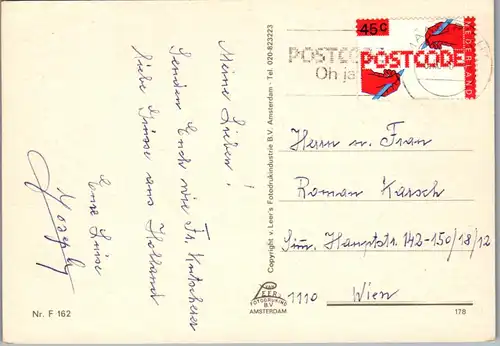 Meine Lieben!
Senden Euch wie Fr. Kutscherer
liebe Grüsse aus Holland
Eure Luise
Josephy
Copyright v. Leer's Fotodrukindustrie B.V. Amsterdam - Tel. 020-823223
45c
POSTCODE
NEDERLAND
POSTCODE
Oh ja
Herrn u. Frau
Roman Karsch
Sim. Hauptstr. 142-150/18/12
1110 Wien
LEER'S
FOTODRUKIND.
B.V.
AMSTERDAM
Nr. F 162
178